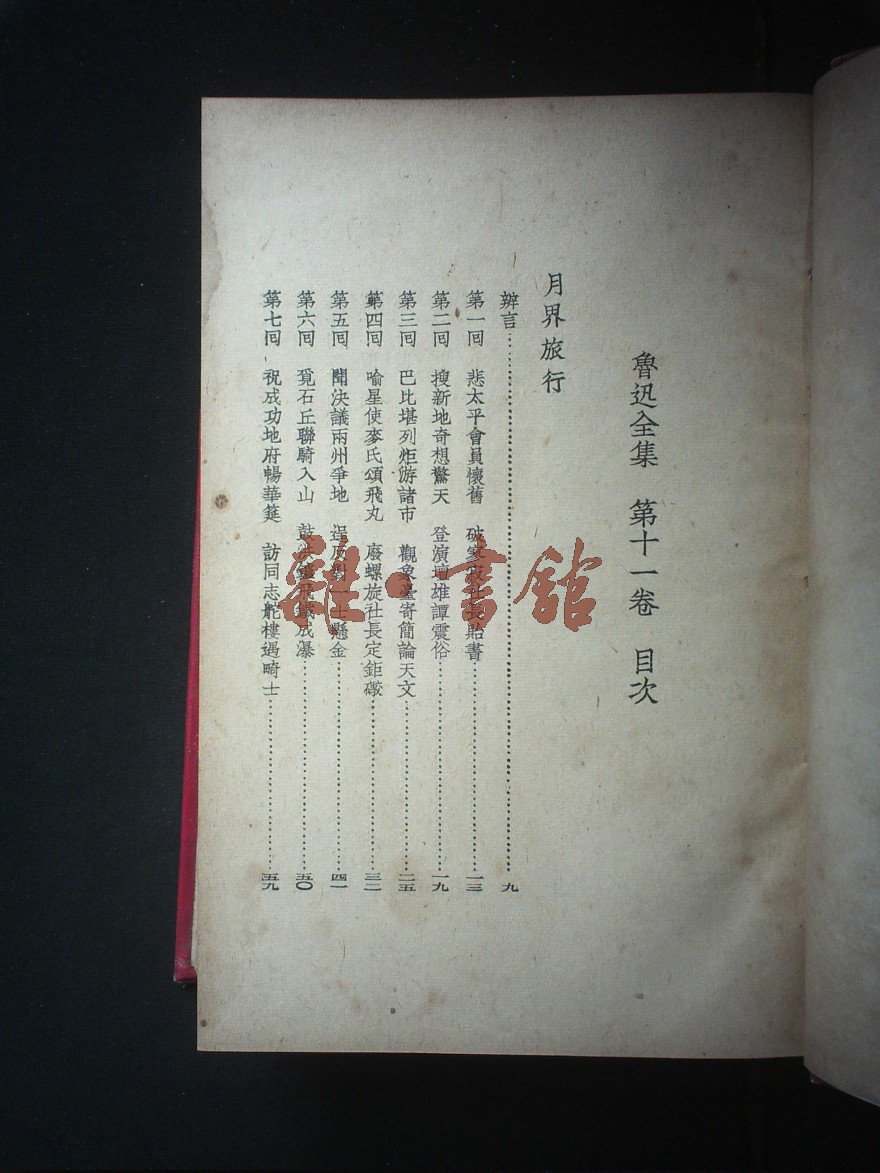 魯迅全集　第十一卷　目次
月界旅行
辨言……九
第一回　悲太平會員懷舊　破寥寂社長貽書……一三
第二回　搜新地奇想驚天　登演壇雄譚震俗……一九
第三回　巴比堪列炬游諸市　觀象臺寄簡論天文……二五
第四回　喻星使麥氏頌飛丸　廢螺旋社長定鉅礮……三二
第五回　聞決議兩州爭地　逞反對一士懸金……四一
第六回　覓石丘聯騎入山　鼓洪鑪飛鐵成瀑……五〇
第七回　祝成功地府暢華筵　訪同志舵樓遇畸士……五九
雜·書館